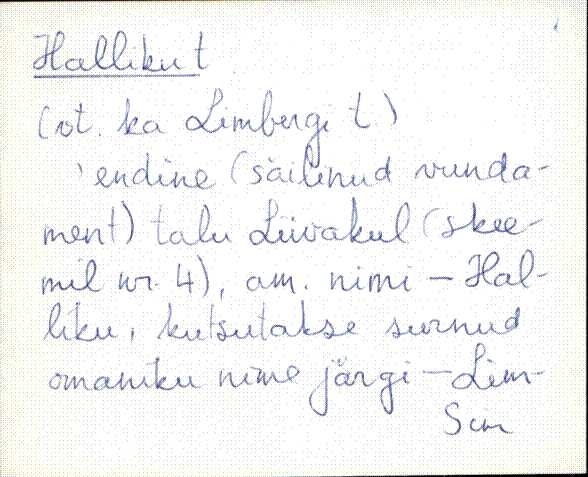 Halliku t
(vt. ka Limbergi t.)
'endine (säilinud vunda-
ment) talu Liivakul (skee-
mil nr. 4), am. nimi – Hal-
liku, kutsutakse surnud
omaniku nime järgi – Lim-